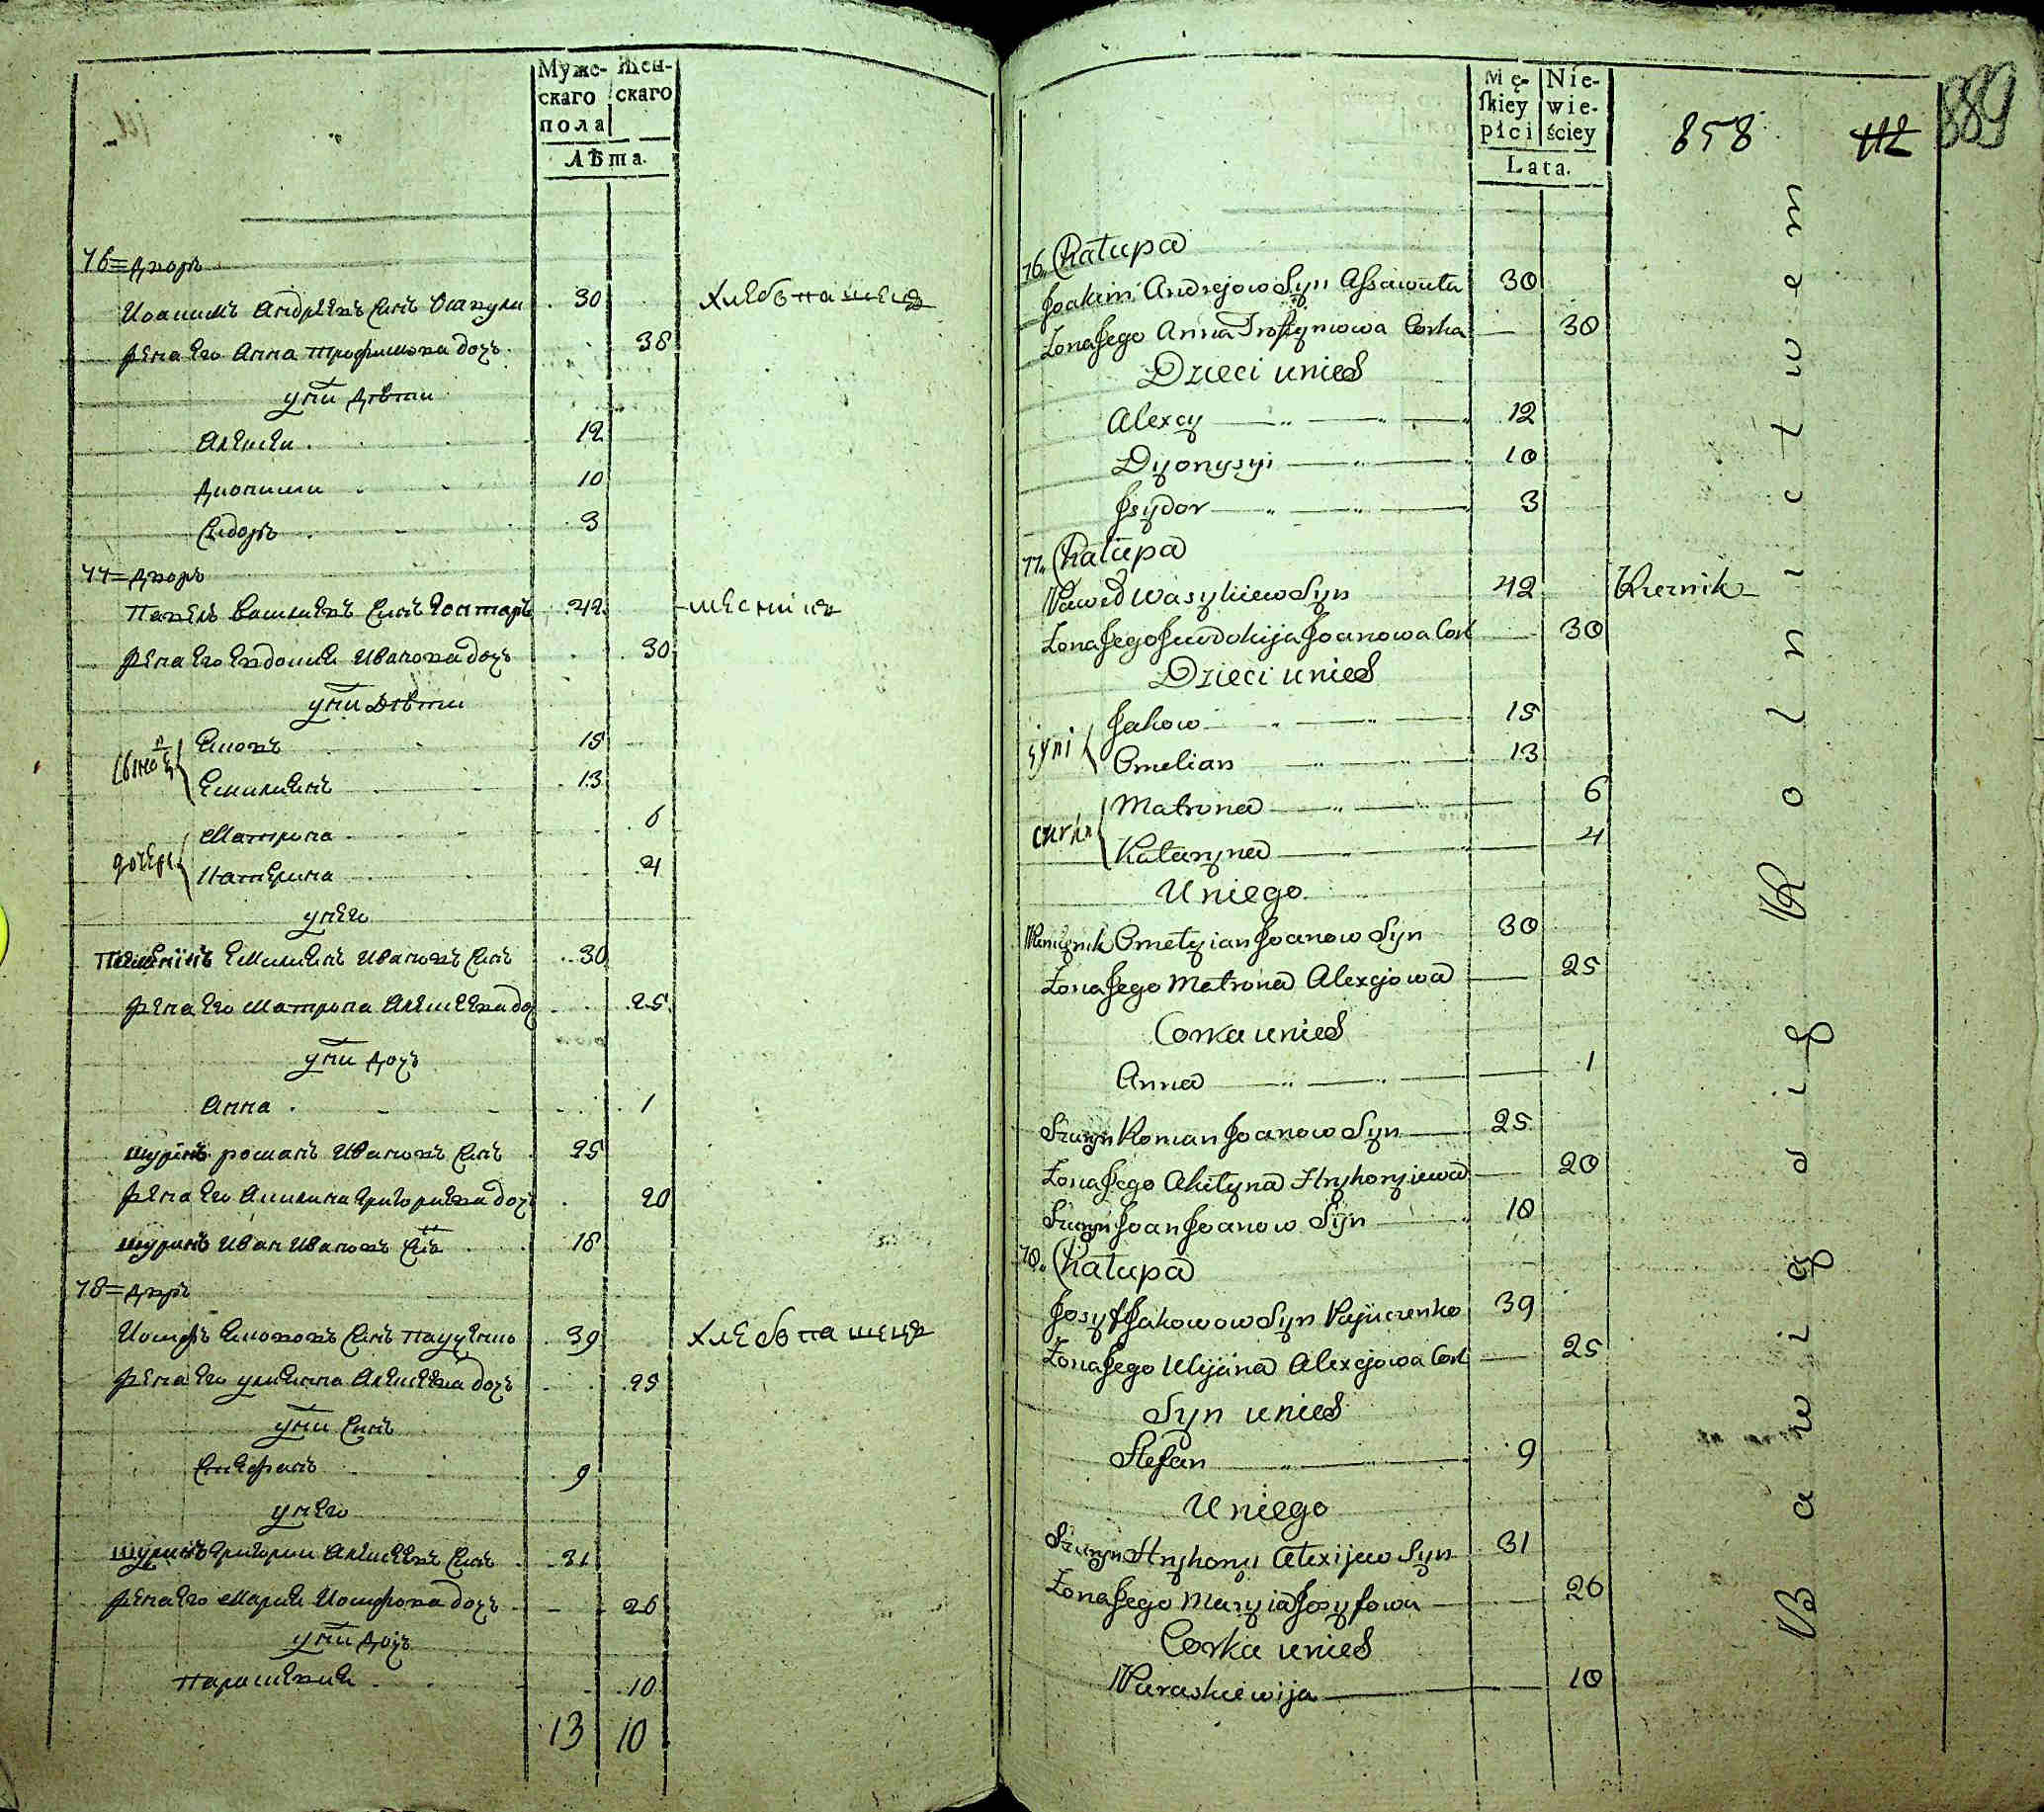 Муже-
скаго
пола
Жен-
скаго
Лѣта.
76 = дворъ
Иоакимъ Андрѣевъ Синъ 30 хлебопашецъ
жена Его Анна трофимова дочъ 38
у них дѣти
Алексѣй 12
Дионисий 10
Сидоръ 3
77 = дворъ
Павелъ Василиевъ Синъ 42
жена Его Евдокия Иванова дочъ 30
у них дѣти
Яковъ 15
Емилиянъ 13
дочери
Матрона 6
Катерина 4
у него
Емилиянъ Ивановъ Синъ 30
жена Его Матрона Алексеева доч 25
у них дочъ
Анна 1
шуринъ романъ Ивановъ Синъ 25
жена Его Акилина Григориева дочъ 20
шуринъ Иван Ивановъ Синъ 18
78 = дворъ
Иосифъ Якововъ Синъ 39 хлебопашецъ
жена Его улиянна Алексѣева дочъ 25
у них Синъ
Стефанъ 9
у него
шуринъ Григорий Алексеевъ Синъ 31
жена Его Мария Иосифова дочъ 26
у них дочъ
Параскевия 10
13 10
Mę-
ſkiey
płci
Nie-
wie-
ściey
Lata.
858
112
889
76. Chałupa
Joakim Andrejow Syn Assawuła 30
Żona Jego Anna Trofymowa Corka 38
Dzieci u nich
Alexey 12
Dyonysyi 10
Jsydor 3
77. Chałupa
Paweł Wasyliiew Syn 42
Żona Jego Jewdokija Joanowa Cork 30
Dzieci u nich
Jakow 15
Omelian 13
Matrona 6
Kataryna 4
U niego
Omelyian Joanow Syn 30
Żona Jego Matrona Alexejowa 25
Corka u nich
Anna 1
Szuryn Roman Joanow Syn 25
Żona Jego Akilyna Hryhoryiewa 20
Szuryn Joan Joanow Syn 18
78. Chałupa
Josyf Jakowow Syn 39
Żona Jego Ulijana Alexejowa Cork 25
Syn u nich
Stefan 9
U niego
Szuryn Hryhoryi Alexijew Syn 31
Żona Jego Maryia Josyfowa 26
Corka u nich
Paraskiewija 10
Bawią się Rolnictwem